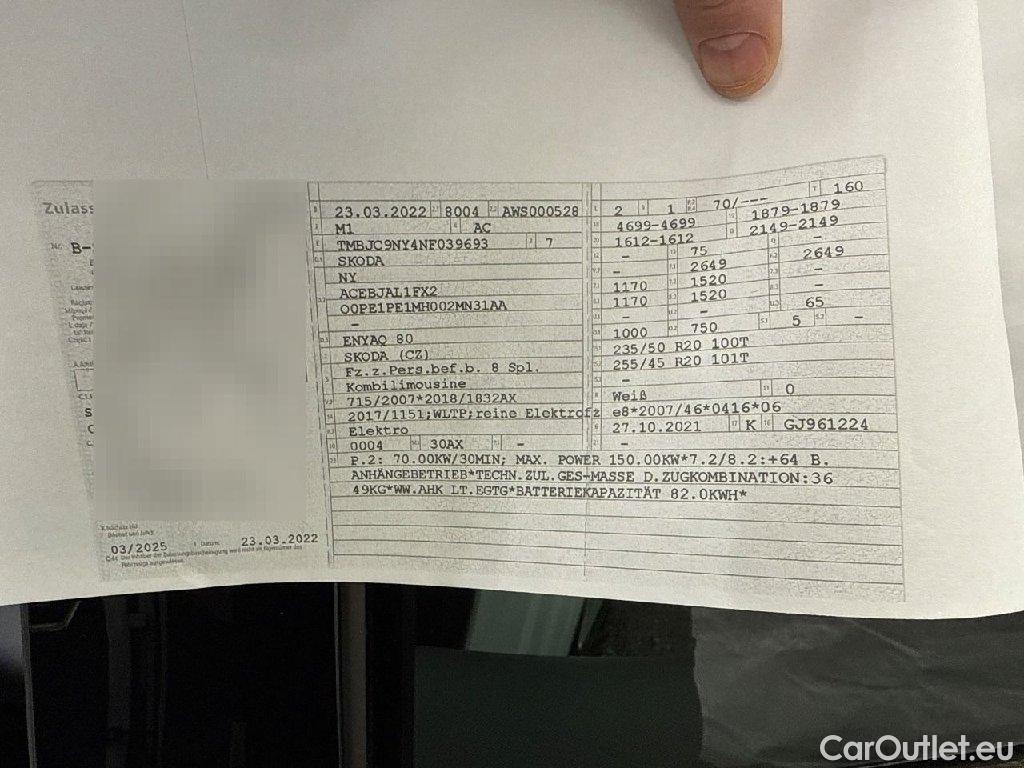 Zulass
B-
23.03.2022 8004 AWS000528
M1 AC
TMBJC9NY4NF039693 7
SKODA
NY
ACEBJAL1FX2
OOPE1PE1MH002MN31AA
–
ENYAQ 80
SKODA (CZ)
Fz.z.Pers.bef.b. 8 Spl.
Kombilimousine
715/2007*2018/1832AX
2017/1151;WLTP;reine Elektrofz
Elektro
0004 30AX –
2 1 70/--- 160
4699-4699 1879-1879
1612-1612 2149-2149
– 75
– 2649 2649
1170 1520 –
1170 1520 –
– – 65
1000 750 5 –
235/50 R20 100T
255/45 R20 101T
–
Weiß 0
e8*2007/46*0416*06
27.10.2021 K GJ961224
–
P.2: 70.00KW/30MIN; MAX. POWER 150.00KW*7.2/8.2:+64 B.
ANHÄNGEBETRIEB*TECHN.ZUL.GES-MASSE D.ZUGKOMBINATION:36
49KG*WW.AHK LT.EGTG*BATTERIEKAPAZITÄT 82.0KWH*
03/2025 Datum: 23.03.2022
CarOutlet.eu